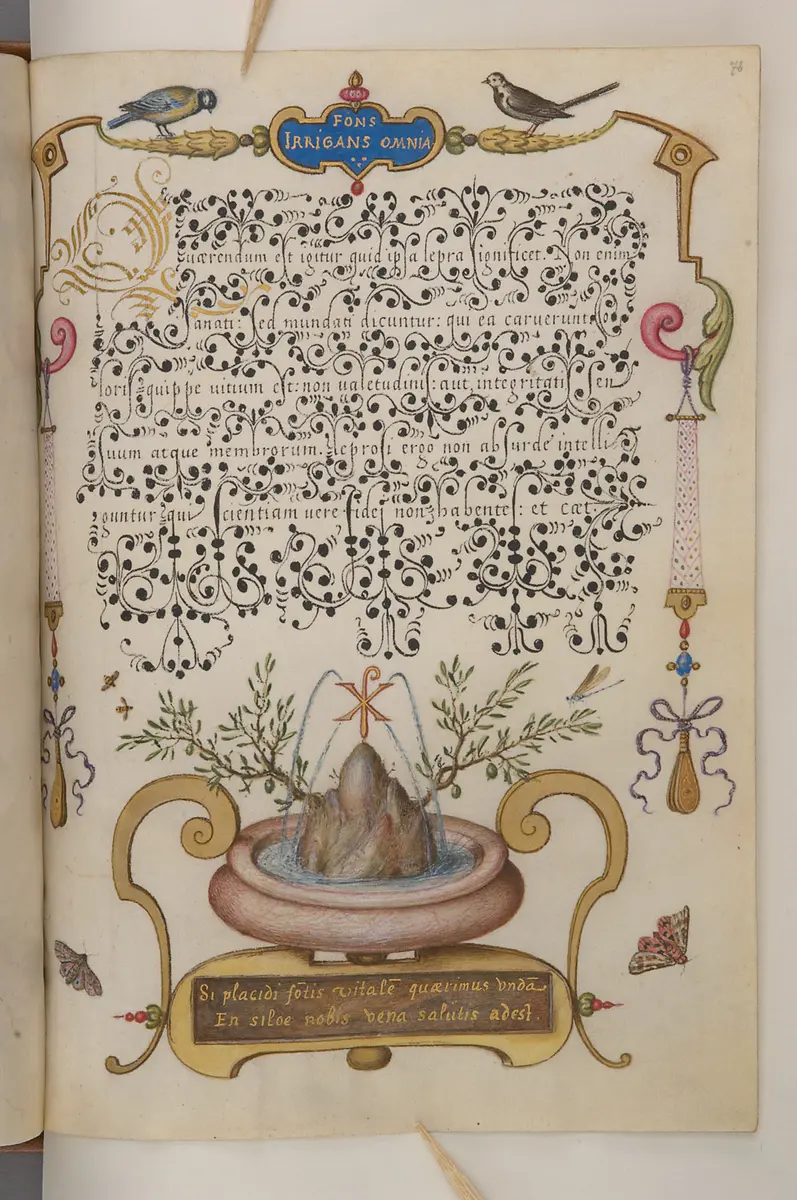 76
FONS
IRRIGANS OMNIA
Quærendum est igitur quid ipsa lepra significet. Non enim
sanati: sed mundati dicuntur: qui ea caruerunt. Co
loris quippe uitium est: non ualetudinis aut integritatis sen
suum atque membrorum. Leprosi ergo non absurde intelli
guntur qui scientiam vere fidei non habentes: et cæt.
Si placidi fōtis vitalē quærimus vndā
En siloe nobis vena salutis adest.